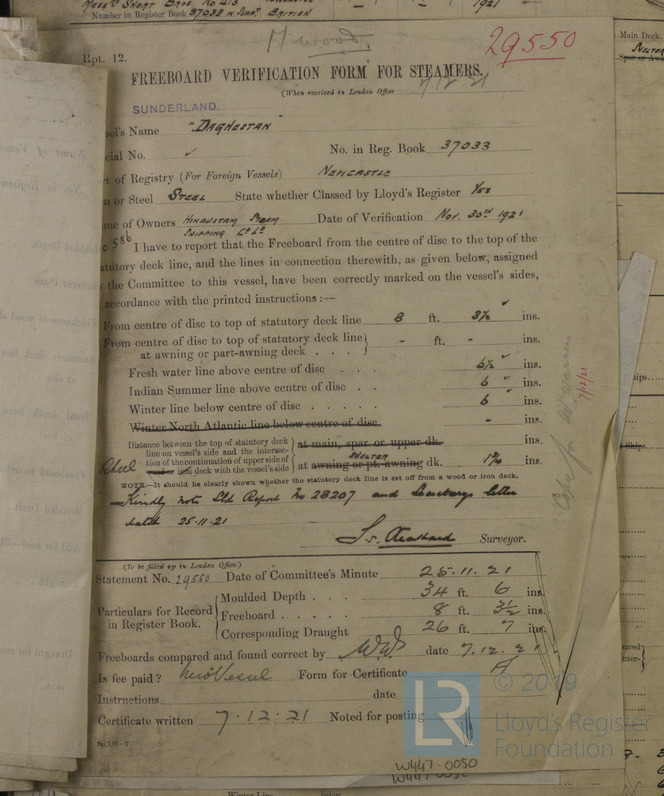 1921
Number in Register Book 37033 in Supt. BRITISH
Main Deck.
29550
Rpt. 12.
FREEBOARD VERIFICATION FORM FOR STEAMERS.
(When received in London Office 7/12/21
SUNDERLAND.
el's Name "DAGHESTAN"
ial No. ✓ No. in Reg. Book 37033
t of Registry (For Foreign Vessels) NEWCASTLE
n or Steel STEEL State whether Classed by Lloyd's Register Yes
me of Owners HINDUSTAN STEAM SHIPPING Co Ld Date of Verification Nov. 30th 1921
I have to report that the Freeboard from the centre of disc to the top of the
atutory deck line, and the lines in connection therewith, as given below, assigned
the Committee to this vessel, have been correctly marked on the vessel's sides,
accordance with the printed instructions:—
From centre of disc to top of statutory deck line 8 ft. 3½ ins.
From centre of disc to top of statutory deck line
at awning or part-awning deck . . . - ft. - ins.
Fresh water line above centre of disc . . . ins.
Indian Summer line above centre of disc . . 6 ins.
Winter line below centre of disc . . . . 6 ins.
Winter North Atlantic line below centre of disc - ins.
Distance between the top of statutory deck
line on vessel's side and the intersec-
tion of the continuation of upper side of
Steel wood or iron deck with the vessel's side
at main, spar or upper dk. ins.
SHELTER
at awning or pt. awning dk. ins.
NOTE.—It should be clearly shown whether the statutory deck line is set off from a wood or iron deck.
Kindly note Sld Report No 28207 and Secretarys letter
dated 25-11-21
Surveyor.
(To be filled up in London Office.)
Statement No. 29550 Date of Committee's Minute 25.11.21
Particulars for Record in Register Book.
Moulded Depth . . . 34 ft. 6 ins.
Freeboard . . . . . 8 ft. 3½ ins.
Corresponding Draught 26 ft. 7 ins.
Freeboards compared and found correct by date 7.12.21
Is fee paid? New Vessel Form for Certificate A
Instructions date
Certificate written 7.12.21 Noted for posting
7/12/21
LR
© 2019
Lloyd's Register
Foundation
W447-0050
W447-0050